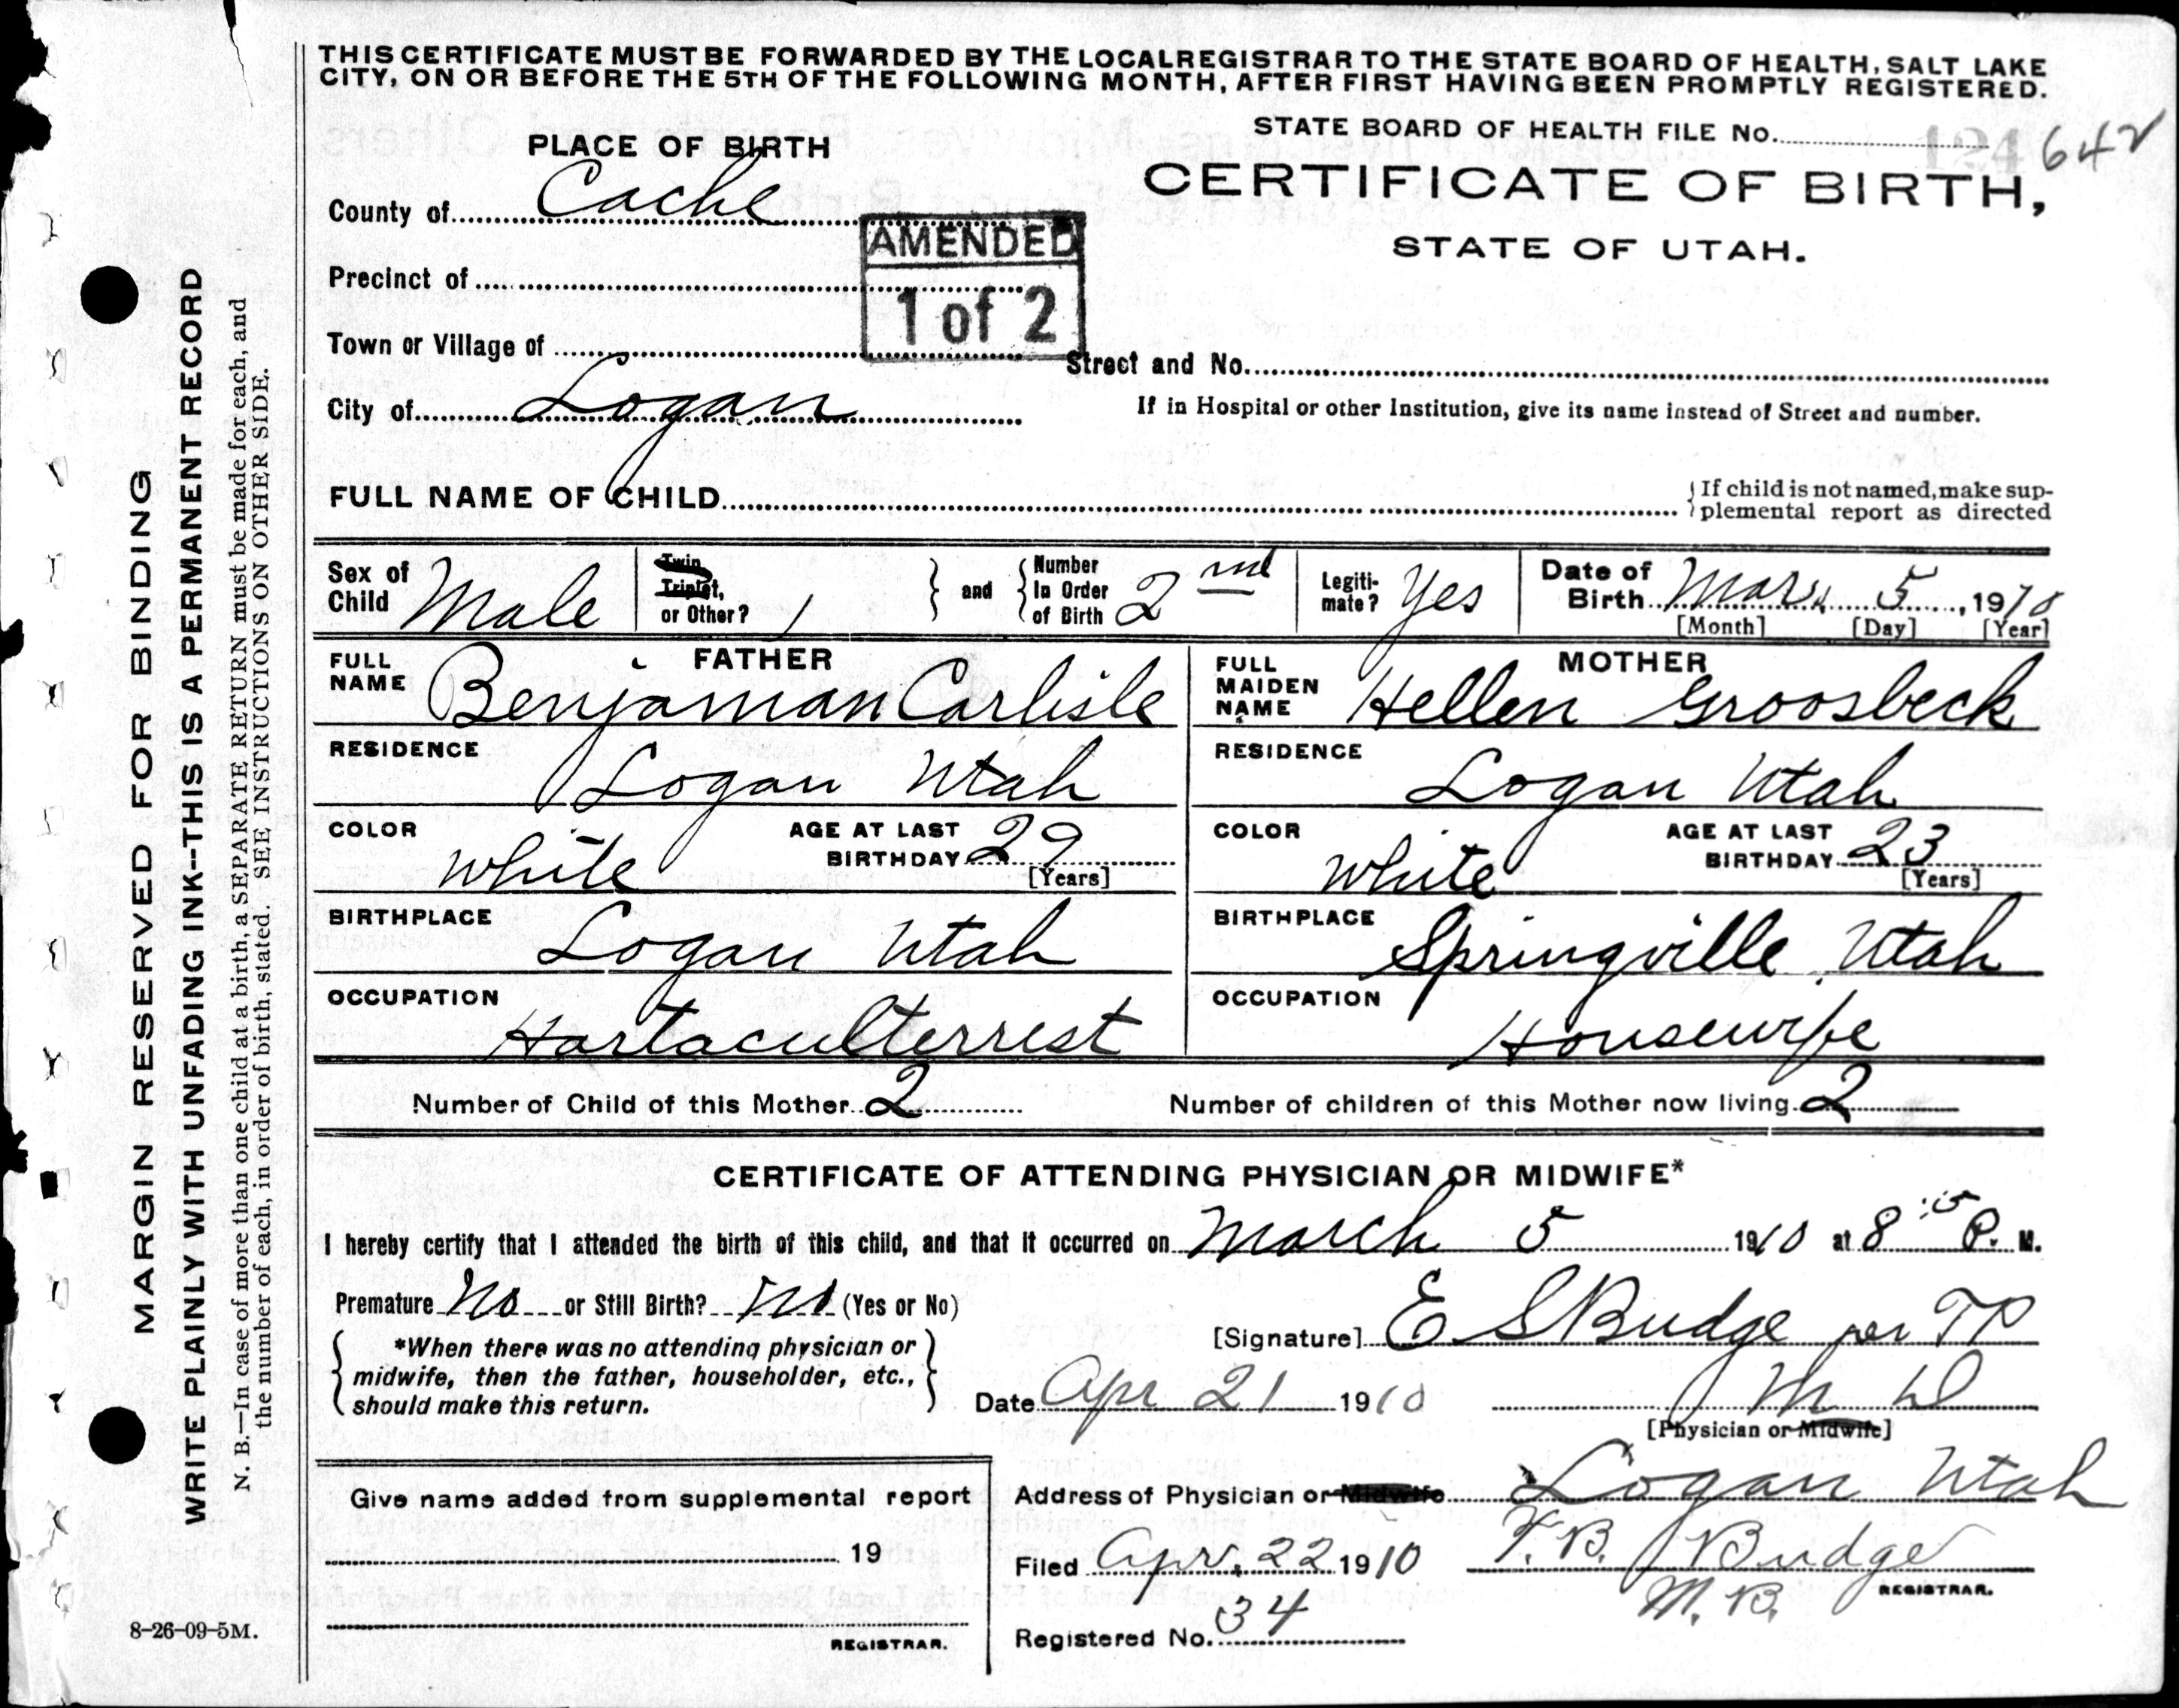 THIS CERTIFICATE MUST BE FORWARDED BY THE LOCAL REGISTRAR TO THE STATE BOARD OF HEALTH, SALT LAKE
CITY, ON OR BEFORE THE 5TH OF THE FOLLOWING MONTH, AFTER FIRST HAVING BEEN PROMPTLY REGISTERED.
STATE BOARD OF HEALTH FILE No. 642
CERTIFICATE OF BIRTH,
STATE OF UTAH.
PLACE OF BIRTH
County of Cache
AMENDED
1 of 2
Precinct of
Town or Village of
Street and No.
City of Logan
If in Hospital or other Institution, give its name instead of Street and number.
FULL NAME OF CHILD
If child is not named, make sup-
plemental report as directed
Sex of Child Male
Twin, Triplet, or Other? 1
and
Number In Order of Birth 2nd
Legiti-mate? Yes
Date of Birth Mar. 5, 1910
[Month] [Day] [Year]
FATHER
FULL NAME Benjaman Carlisle
RESIDENCE Logan Utah
COLOR White
AGE AT LAST BIRTHDAY 29
[Years]
BIRTHPLACE Logan Utah
OCCUPATION Hartaculterrest
MOTHER
FULL MAIDEN NAME Hellen Groosbeck
RESIDENCE Logan Utah
COLOR White
AGE AT LAST BIRTHDAY 23
[Years]
BIRTHPLACE Springville Utah
OCCUPATION Housewife
Number of Child of this Mother 2
Number of children of this Mother now living 2
CERTIFICATE OF ATTENDING PHYSICIAN OR MIDWIFE*
I hereby certify that I attended the birth of this child, and that it occurred on March 5 1910 at 8:15 P. M.
Premature No or Still Birth? No (Yes or No)
*When there was no attending physician or
midwife, then the father, householder, etc.,
should make this return.
[Signature] E S Budge per TP
M D
[Physician or Midwife]
Date Apr 21 1910
Give name added from supplemental report
19
REGISTRAR.
Address of Physician or Midwife Logan Utah
Filed Apr. 22 1910
T. B. Budge
M. D.
REGISTRAR.
Registered No. 34
MARGIN RESERVED FOR BINDING
WRITE PLAINLY WITH UNFADING INK--THIS IS A PERMANENT RECORD
N. B.—In case of more than one child at a birth, a SEPARATE RETURN must be made for each, and
the number of each, in order of birth, stated. SEE INSTRUCTIONS ON OTHER SIDE.
8-26-09-5M.